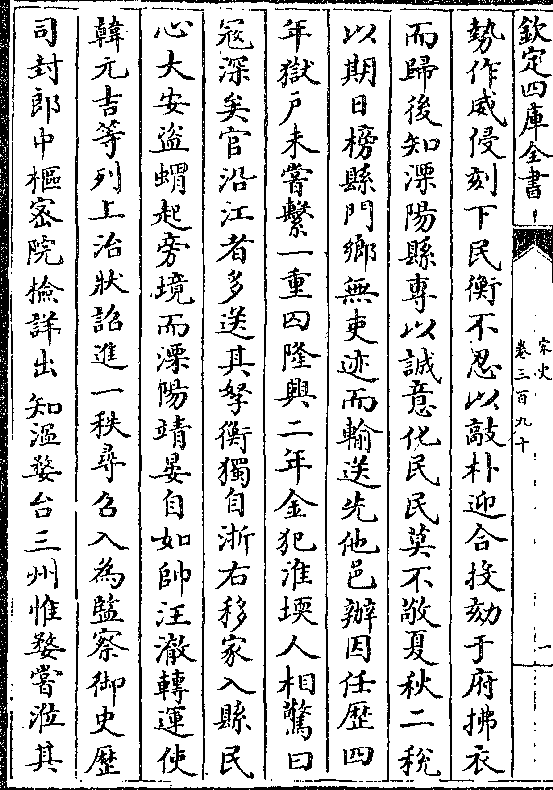 欽定四庫全書
宋史
卷三百九十
一
勢作威侵刻下民衡不忍以敲朴迎合投劾于府拂衣
而歸後知溧陽縣專以誠意化民民莫不敬夏秋二稅
以期日榜縣門鄉無吏迹而輸送先他邑辦因任歴四
年獄户未嘗繫一重囚隆興二年金犯淮堧人相驚曰
寇深矣官沿江者多送其孥衡獨自浙右移家入縣民
心大安盜蝟起旁境而溧陽靖晏自如帥汪澈轉運使
韓元吉等列上治狀詔進一秩尋召入為監察御史歴
司封郎中樞密院檢詳出知温婺台三州惟婺嘗涖其